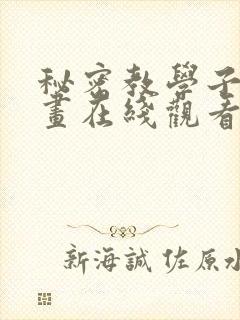 秘密教學子
畫在綫觀看
新海誠 佐原水